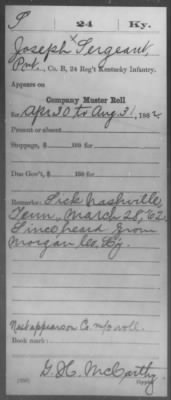 S 24 Ky.
Joseph x Sergeant,
Pvt., Co. B, 24 Reg't Kentucky Infantry.
Appears on
Company Muster Roll
for Apr 30 to Aug 31, 1862.
Present or absent
Stoppage, $ 100 for
Due Gov't, $ 100 for
Remarks: Sick Nashville,
Tenn., March 28, '62.
Since heard from
Morgan Co. Ky.
Next appears on Co. m/o roll.
Book mark:
G. H. McCarthy
Copyist.